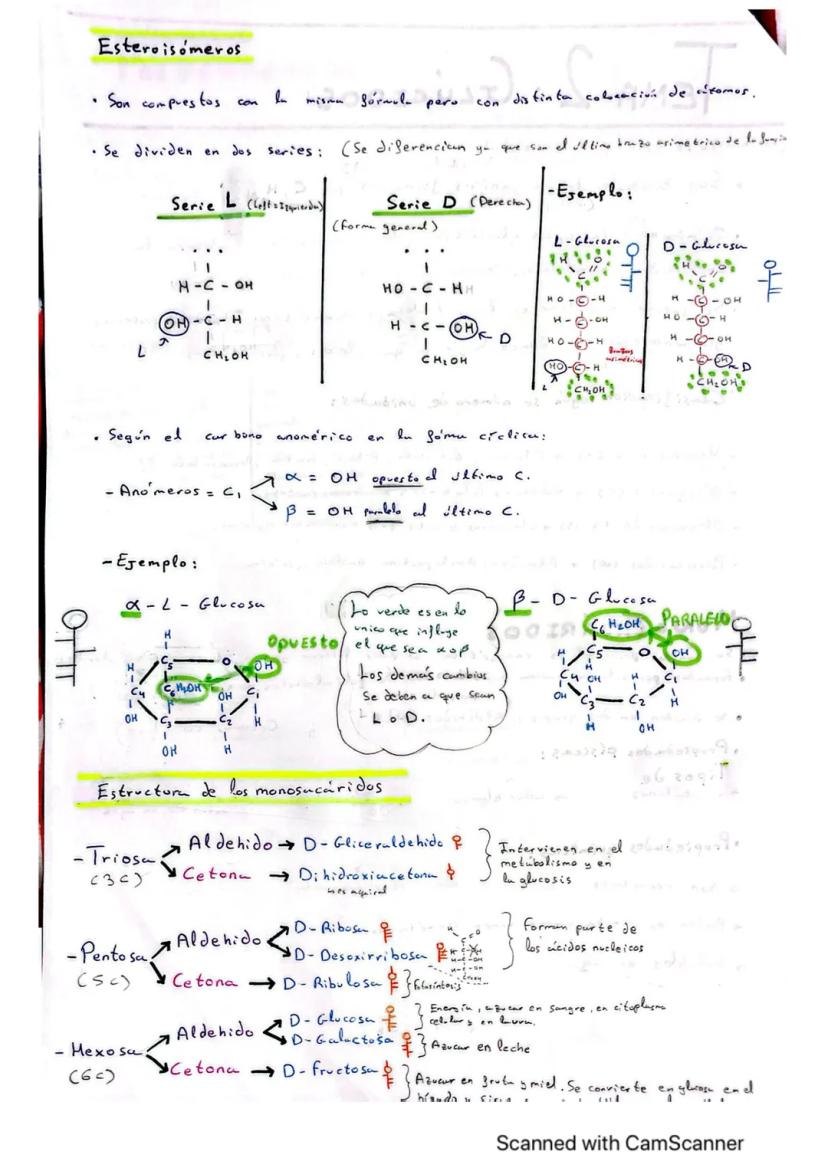 Esteroisómeros
· Son compuestos con la misma fórmula pero con distinta colocación de átomos.
· Se dividen en dos series: (Se diferencian ya que son el último brazo asimetrico de la
Serie L (Left=Izquierda)
Serie D (Derecha)
(forma general)
- Ejemplo:
L-Glucosa
D-Glucosa
...
H - C - OH
OH - C - H
L
CH₂OH
...
HO - C - H
H - C - OH
D
CH₂OH
H O
C
HO - C - H
H - C - OH
HO - C - H
HO - C - H
L
CH₂OH
Brazos
asimétricos
H O
C
H - C - OH
HO - C - H
H - C - OH
H - C - OH
D
CH₂OH
· Según el carbono anomérico en la fóma cíclica:
- Anómeros = C₁
α = OH opuesto al último C.
β = OH paralelo al último C.
- Ejemplo:
α - L - Glucosa
OPUESTO
H
C5 O OH
H C6H2OH H
C4 OH C1
OH C3 C2 H
OH H
Lo verde es en lo
unico que influye
el que sea α o β
Los demás cambios
se deben a que sean
L o D.
β - D - Glucosa
C6 H2OH PARALELO
C5 O OH
H
C4 OH H C1
C3 C2 H
H OH
Estructura de los monosacáridos
- Triosa
(3C)
Aldehido → D-Gliceraldehido
Cetona → Dihidroxiacetona
no es quiral
Intervienen en el
metabolismo y en
la glucosis
- Pentosa
(5c)
Aldehido
D-Ribosa
D-Desoxirribosa
Cetona → D-Ribulosa
Fotosíntesis
Forman parte de
los ácidos nucleicos
- Hexosa
(6c)
Aldehido
D-Glucosa
D-Galactosa
Cetona → D-Fructosa
Energía, azucar en sangre, en citoplasma
celular y en
Azucar en leche
Azucar en fruta y miel. Se convierte en glucosa en el
Scanned with CamScanner